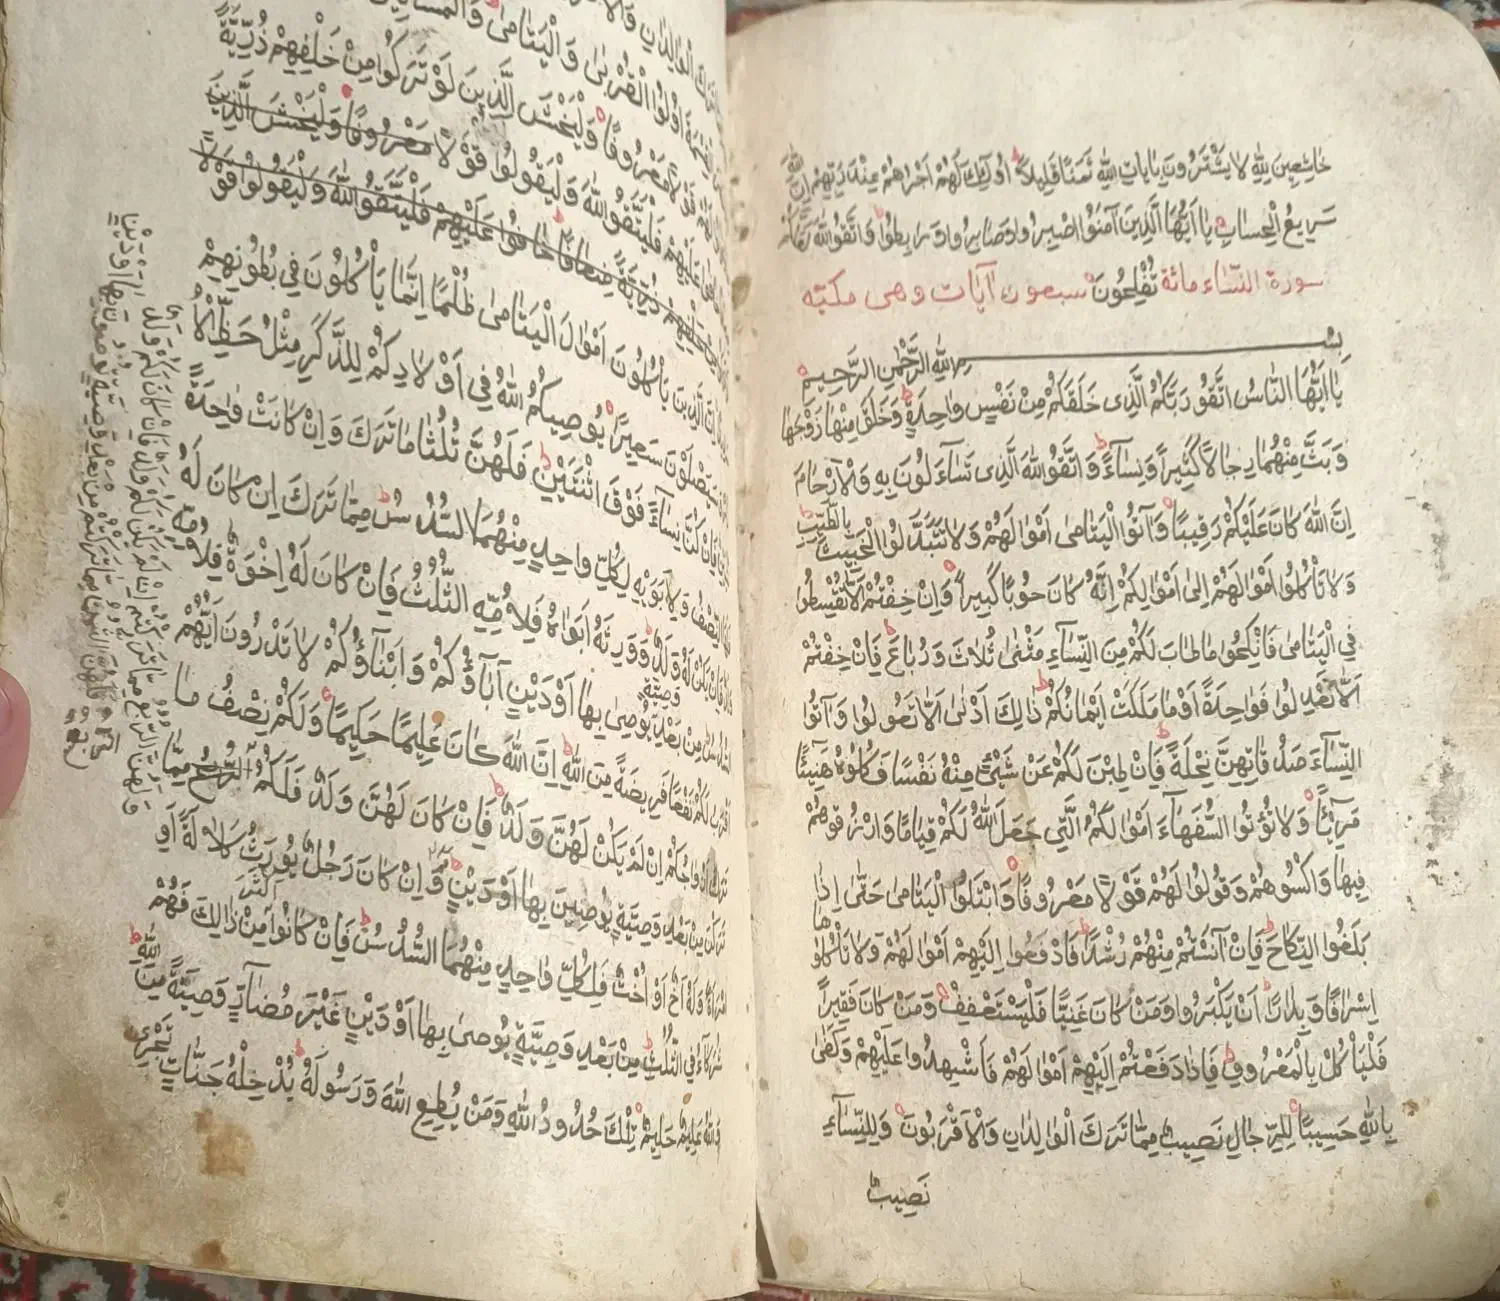 خَاشِعِينَ لِلّٰهِ لَا يَشْتَرُونَ بِاٰيَاتِ اللّٰهِ ثَمَنًا قَلِيلًا اُولٰئِكَ لَهُمْ اَجْرُهُمْ عِنْدَ رَبِّهِمْ اِنَّ اللّٰهَ
سَرِيعُ الْحِسَابِ يَا اَيُّهَا الَّذِينَ آمَنُوا اصْبِرُوا وَصَابِرُوا وَرَابِطُوا وَاتَّقُوا اللّٰهَ لَعَلَّكُمْ
سورة النّساء مائة تُفْلِحُونَ سبعون آيات وهى مكيّه
بِسْمِ اللّٰهِ الرَّحْمٰنِ الرَّحِيمِ
يَا اَيُّهَا النَّاسُ اتَّقُو رَبَّكُمُ الَّذِى خَلَقَكُمْ مِنْ نَفْسٍ وَاحِدَةٍ وَخَلَقَ مِنْهَا زَوْجَهَا
وَبَثَّ مِنْهُمَا رِجَالًا كَثِيرًا وَنِسَآءً وَاتَّقُو اللّٰهَ الَّذِى تَسَآءَلُونَ بِهِ وَالْاَرْحَامَ
اِنَّ اللّٰهَ كَانَ عَلَيْكُمْ رَقِيبًا وَآتُوا الْيَتَامٰى اَمْوَالَهُمْ وَلَا تَتَبَدَّلُوا الْخَبِيثَ بِالطَّيِّبِ
وَلَا تَأْكُلُوا اَمْوَالَهُمْ اِلٰى اَمْوَالِكُمْ اِنَّهُ كَانَ حُوبًا كَبِيرًا وَاِنْ خِفْتُمْ اَلَّا تُقْسِطُوا
فِي الْيَتَامٰى فَانْكِحُوا مَا طَابَ لَكُمْ مِنَ النِّسَآءِ مَثْنٰى ثُلَاثَ وَرُبَاعَ فَاِنْ خِفْتُمْ
اَلَّا تَعْدِلُوا فَوَاحِدَةً اَوْ مَا مَلَكَتْ اَيْمَانُكُمْ ذَالِكَ اَدْنٰى اَلَّا تَعُولُوا وَآتُوا
النِّسَآءَ صَدُقَاتِهِنَّ نِحْلَةً فَاِنْ طِبْنَ لَكُمْ عَنْ شَيْئٍ مِنْهُ نَفْسًا فَكُلُوهُ هَنِيئًا
مَرِيئًا وَلَا تُؤْتُوا السُّفَهَآءَ اَمْوَالَكُمُ الَّتِي جَعَلَ اللّٰهُ لَكُمْ قِيَامًا وَارْزُقُوهُمْ
فِيهَا وَاكْسُوهُمْ وَقُولُوا لَهُمْ قَوْلًا مَعْرُوفًا وَابْتَلُوا الْيَتَامٰى حَتّٰى اِذَا
بَلَغُوا النِّكَاحَ فَاِنْ آنَسْتُمْ مِنْهُمْ رُشْدًا فَادْفَعُوا اِلَيْهِمْ اَمْوَالَهُمْ وَلَا تَأْكُلُوهَا
اِسْرَافًا وَبِدَارًا اَنْ يَكْبَرُوا وَمَنْ كَانَ غَنِيًّا فَلْيَسْتَعْفِفْ وَمَنْ كَانَ فَقِيرًا
فَلْيَأْكُلْ بِالْمَعْرُوفِ فَاِذَا دَفَعْتُمْ اِلَيْهِمْ اَمْوَالَهُمْ فَاَشْهِدُوا عَلَيْهِمْ وَكَفٰى
بِاللّٰهِ حَسِيبًا لِلرِّجَالِ نَصِيبٌ مِمَّا تَرَكَ الْوَالِدَانِ وَالْاَقْرَبُونَ وَلِلنِّسَآءِ
نَصِيبٌ
الْوَالِدَانِ وَالْاَ
اُولُوا الْقُرْبٰى وَالْيَتَامٰى وَالْمَسَاكِينُ
قَوْلًا مَعْرُوفًا وَلْيَخْشَ الَّذِينَ لَوْ تَرَكُوا مِنْ خَلْفِهِمْ ذُرِّيَّةً
عَلَيْهِمْ فَلْيَتَّقُو اللّٰهَ وَلْيَقُولُوا قَوْلًا مَعْرُوفًا وَلْيَخْشَ الَّذِينَ
خَلْفِهِمْ ذُرِّيَّةً ضِعَافًا خَافُوا عَلَيْهِمْ فَلْيَتَّقُو اللّٰهَ وَلْيَقُولُوا قَوْلًا
اِنَّ الَّذِينَ يَأْكُلُونَ اَمْوَالَ الْيَتَامٰى ظُلْمًا اِنَّمَا يَأْكُلُونَ فِي بُطُونِهِمْ
سَيَصْلَوْنَ سَعِيرًا يُوصِيكُمُ اللّٰهُ فِي اَوْلَادِكُمْ لِلذَّكَرِ مِثْلُ حَظِّ الْاُ
فَاِنْ كُنَّ نِسَآءً فَوْقَ اثْنَتَيْنِ فَلَهُنَّ ثُلُثَا مَا تَرَكَ وَاِنْ كَانَتْ وَاحِدَةً
النِّصْفُ وَلِاَبَوَيْهِ لِكُلِّ وَاحِدٍ مِنْهُمَا السُّدُسُ مِمَّا تَرَكَ اِنْ كَانَ لَهُ
فَاِنْ لَمْ يَكُنْ لَهُ وَلَدٌ وَوَرِثَهُ اَبَوَاهُ فَلِاُمِّهِ الثُّلُثُ فَاِنْ كَانَ لَهُ اِخْوَةٌ فَلِاُمِّهِ
السُّدُسُ مِنْ بَعْدِ وَصِيَّةٍ يُوصٰى بِهَا اَوْ دَيْنٍ آبَآؤُكُمْ وَاَبْنَآؤُكُمْ لَا تَدْرُونَ اَيُّهُمْ
اَقْرَبُ لَكُمْ نَفْعًا فَرِيضَةً مِنَ اللّٰهِ اِنَّ اللّٰهَ كَانَ عَلِيمًا حَكِيمًا وَلَكُمْ نِصْفُ مَا
تَرَكَ اَزْوَاجُكُمْ اِنْ لَمْ يَكُنْ لَهُنَّ وَلَدٌ فَاِنْ كَانَ لَهُنَّ وَلَدٌ فَلَكُمُ الرُّبُعُ مِمَّا
تَرَكْنَ مِنْ بَعْدِ وَصِيَّةٍ يُوصِينَ بِهَا اَوْ دَيْنٍ وَاِنْ كَانَ رَجُلٌ يُورَثُ كَلَالَةً اَوِ
امْرَاَةٌ وَلَهُ اَخٌ اَوْ اُخْتٌ فَلِكُلِّ وَاحِدٍ مِنْهُمَا السُّدُسُ فَاِنْ كَانُوا اَكْثَرَ مِنْ ذَالِكَ فَهُمْ
شُرَكَآءُ فِي الثُّلُثِ مِنْ بَعْدِ وَصِيَّةٍ يُوصٰى بِهَا اَوْ دَيْنٍ غَيْرَ مُضَآرٍّ وَصِيَّةً مِنَ اللّٰهِ
وَاللّٰهُ عَلِيمٌ حَلِيمٌ تِلْكَ حُدُودُ اللّٰهِ وَمَنْ يُطِعِ اللّٰهَ وَرَسُولَهُ يُدْخِلْهُ جَنَّاتٍ تَجْرِى
وَلَهُنَّ الرُّبُعُ مِمَّا تَرَكْتُمْ اِنْ لَمْ يَكُنْ لَكُمْ وَلَدٌ فَاِنْ كَانَ لَكُمْ وَلَدٌ
فَلَهُنَّ الثُّمُنُ مِمَّا تَرَكْتُمْ مِنْ بَعْدِ وَصِيَّةٍ تُوصُونَ بِهَا اَوْ دَيْنٍ